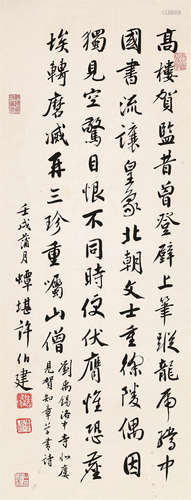 高樓賀監昔曾登壁上蹤龍虎騰中
國書流讓皇象北朝文士重徐陵偶因
獨見空驚目恨不同時便伏膺惟恐塵
埃轉磨滅再三珍重囑山僧
劉禹錫洛中寺北廣
見賀知章草書詩
壬戌蒲月憚堪許伯建